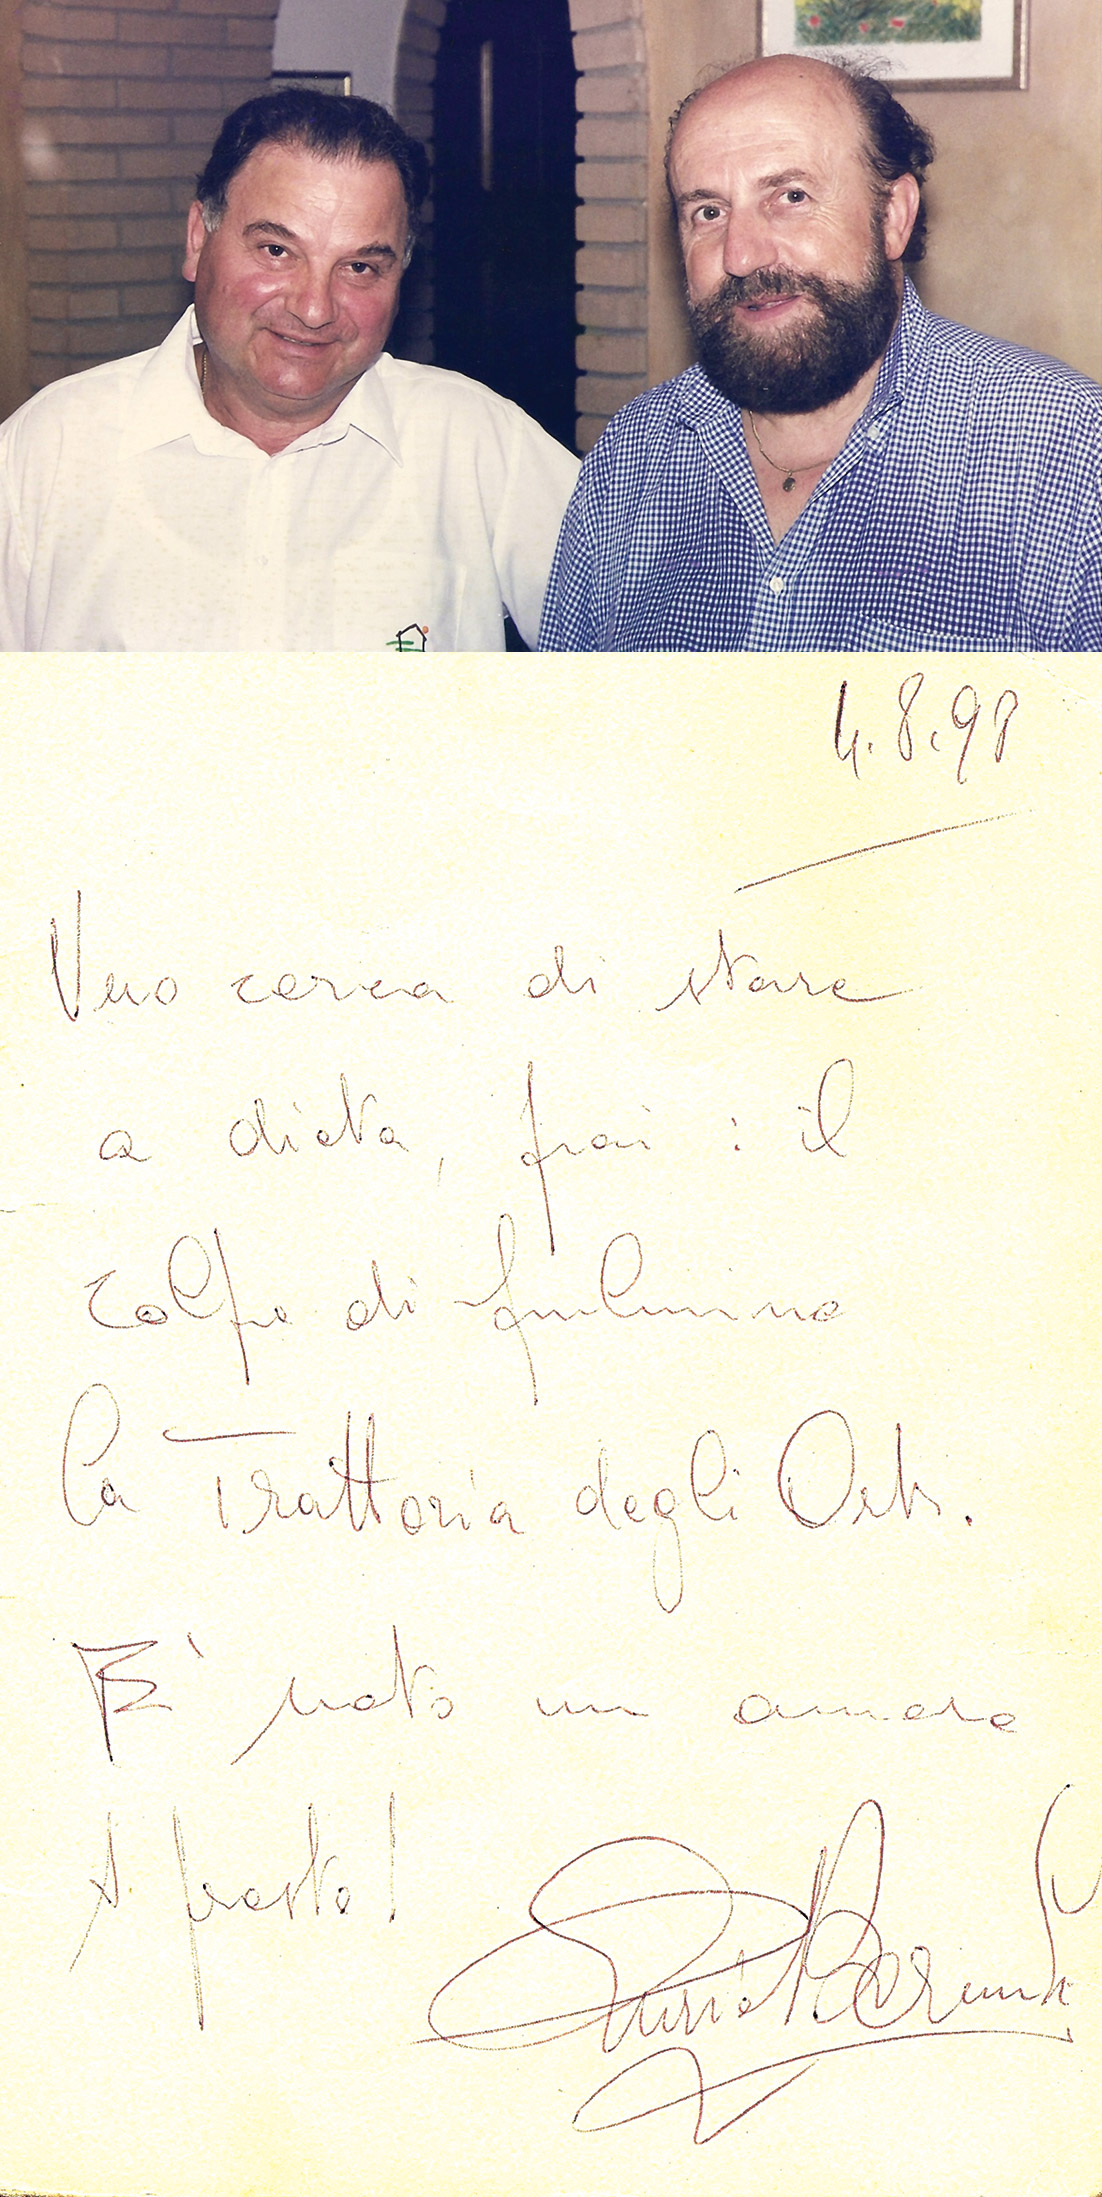 4.8.98
Uno cerca di stare
a dieta, poi : il
colpo di fulmine
la Trattoria degli Orti.
E' nato un amore
A presto!